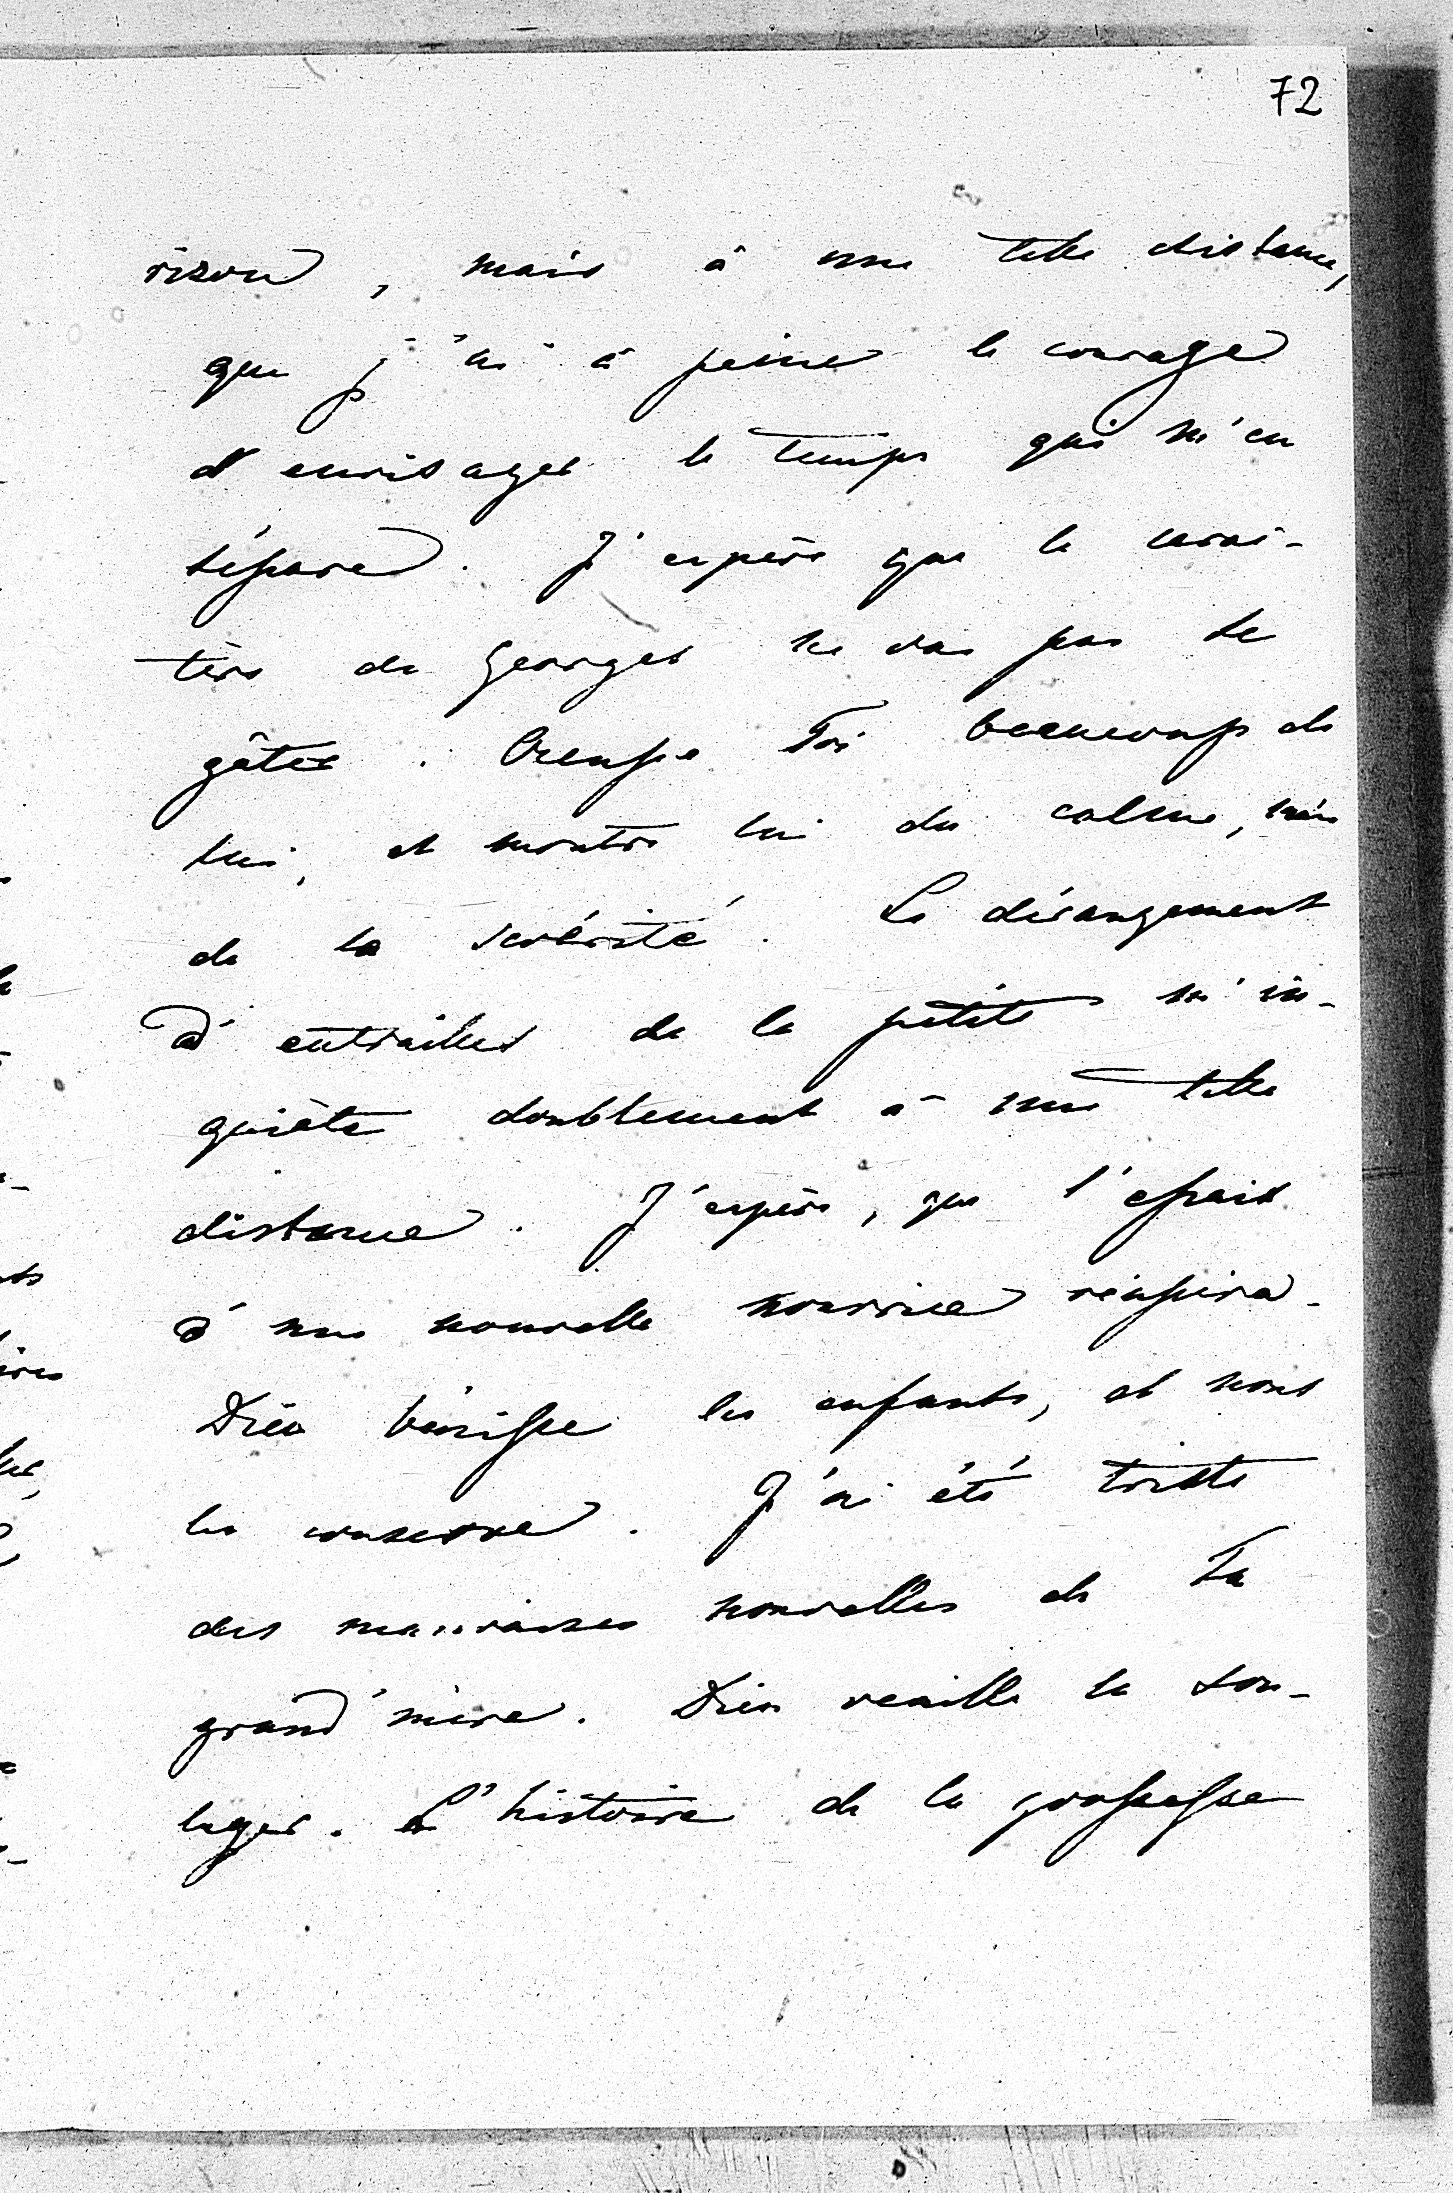 72
rizon, mais à une telle distance,
que j'ai à peine le courage
d'envisager le temps qui m'en
sépare. J'espère que le carac-
tère de Georges ne va pas se
gâter. Occupe Toi beaucoup de
lui, et montre lui du calme, mais
de la sévérité. Le dérangement
d'entrailles de la petite m'in-
quiète doublement à une telle
distance. J'espère, que l'essai
d'une nouvelle nourrice réussira.
Dieu bénisse les enfants, et nous
les conserve. J'ai été triste
des mauvaises nouvelles de Ta
grand'mère. Dieu veuille la sou-
lager. L'histoire de la grossesse